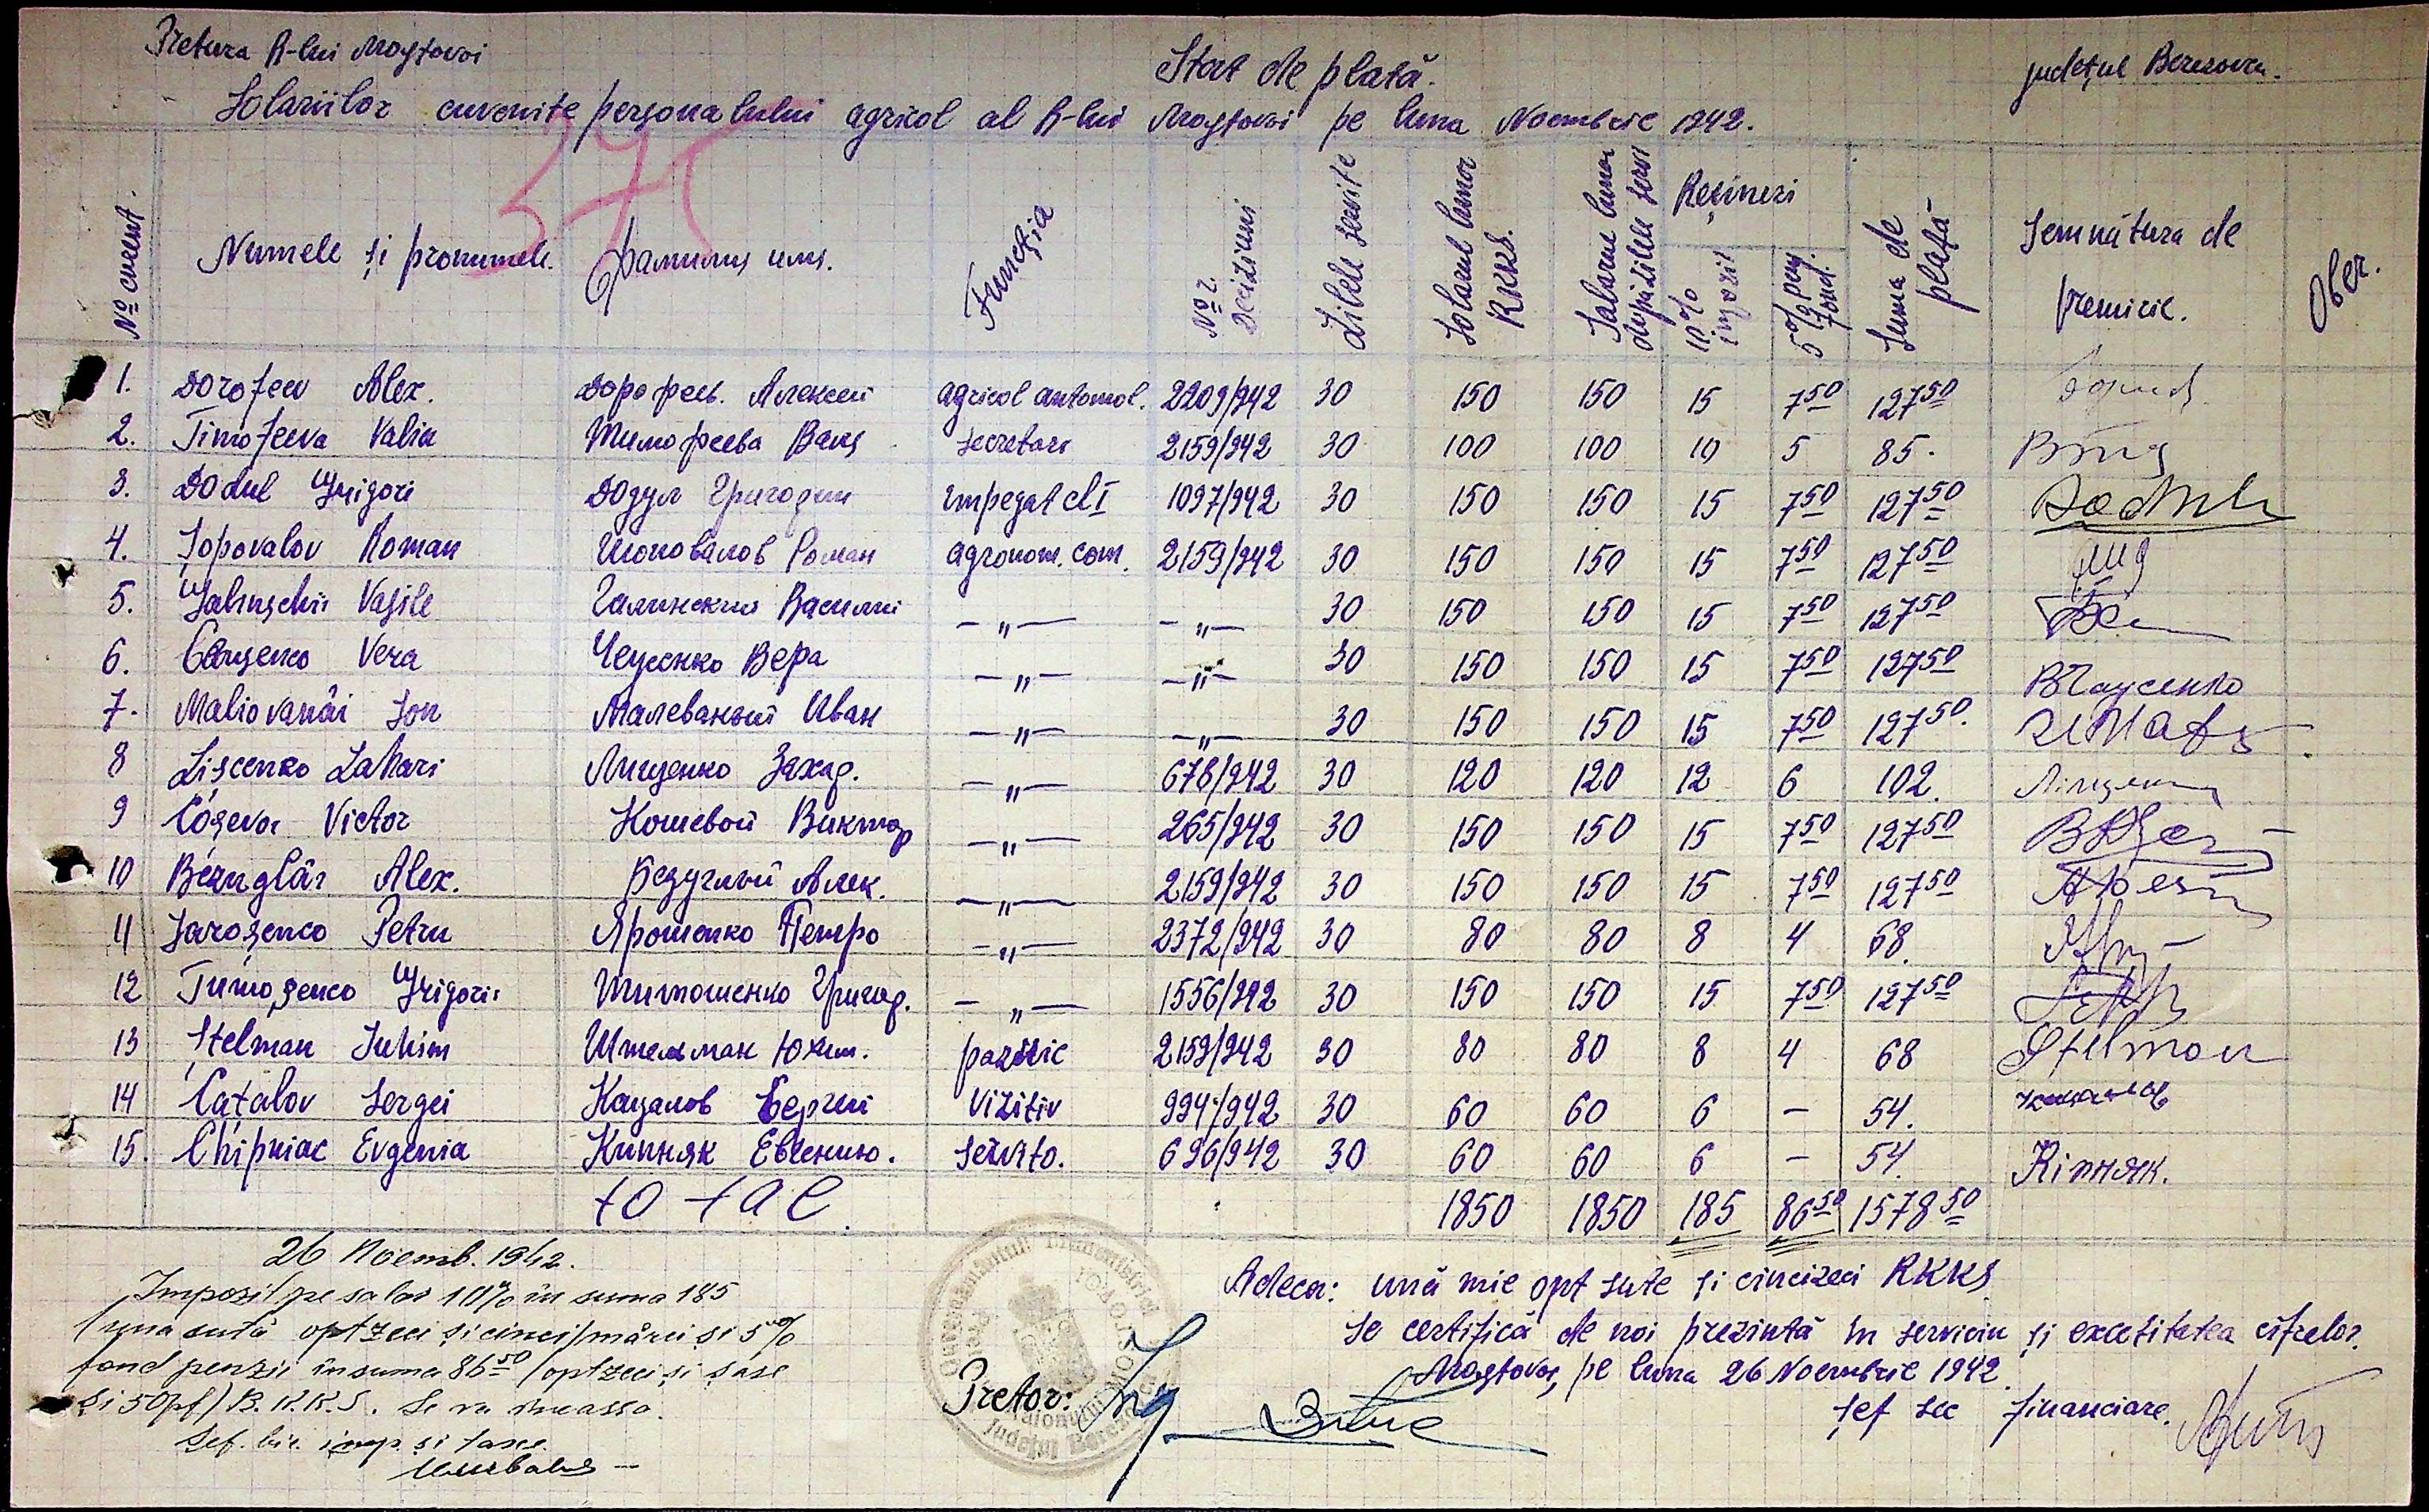 Pretura R-lui Mostovoi
Stat de plată.
județul Berezovca.
Solariilor cuvenite personalului agricol al R-lui Mostovoi pe luna Noembrie 1942.
375
No curent.
Numele și pronumele.
Фамилия имя.
Funcția
No r. Deciziuni
Zilele servite
Solarul lunar RKKS.
Salarul lunar după zilele servi
Rețineri
10% impozit
5% pens. fond.
Suma de plată
Semnătura de primire.
Obser.
1. Dorofeev Alex. Дорофеев. Алексей agricol automob. 2209/942 30 150 150 15 7 50 127 50
2. Timofeeva Valia Тимофеева Валя secretara 2159/942 30 100 100 10 5 85.
3. Dodul Grigori Додул Григорий impegat cl I 1097/942 30 150 150 15 7 50 127 50
4. Șopovalov Roman Шоповалов Роман agronom. com. 2159/942 30 150 150 15 7 50 127 50
5. Galinschii Vasile Галинский Василий —„— —„— 30 150 150 15 7 50 127 50
6. Ceausenco Vera Чеусенко Вера —„— —„— 30 150 150 15 7 50 127 50 ВЧаусенко
7. Maliovanâi Ion Малеваный Иван —„— —„— 30 150 150 15 7 50 127 50.
8 Lișcenko Zahari Лищенко Захар. —„— 678/942 30 120 120 12 6 102.
9 Coșevoi Victor Кошевой Виктор —„— 265/942 30 150 150 15 7 50 127 50
10 Bezuglâi Alex. Безуглый Алек. —„— 2159/942 30 150 150 15 7 50 127 50
11 Iaroșenco Petru Ярошенко Петро —„— 2372/942 30 80 80 8 4 68.
12 Timoșenco Grigorii Тимошенко Григор. —„— 1556/942 30 150 150 15 7 50 127 50
13 Ștelman Iuhim Штельман Юхим. paznic 2159/942 30 80 80 8 4 68 Stelman
14 Cațalov Sergei Кацалов Сергей vizitiv 994/942 30 60 60 6 — 54.
15. Chipniac Evgenia Кипняк Евгению. servito. 696/942 30 60 60 6 — 54. Кіпняк.
total. 1850 1850 185 86 50 1578 50
26 Noemb. 1942.
Impozit pe salar 10% în suma 185
(una sută optzeci și cinci) mărci și 5%
fond penzii în suma 86 50 (optzeci și șase
și 50 pf) R.K.K.S. Se va încassa.
Șef. bir. imp. și taxe
Adeca:ună mie opt sute și cincizeci RKKS
Se certifică de noi prezintă în serviciu și excatitatea cifrelor.
Mostovoi, pe luna 26 Noembrie 1942.
Pretor:
Șef sec financiare.